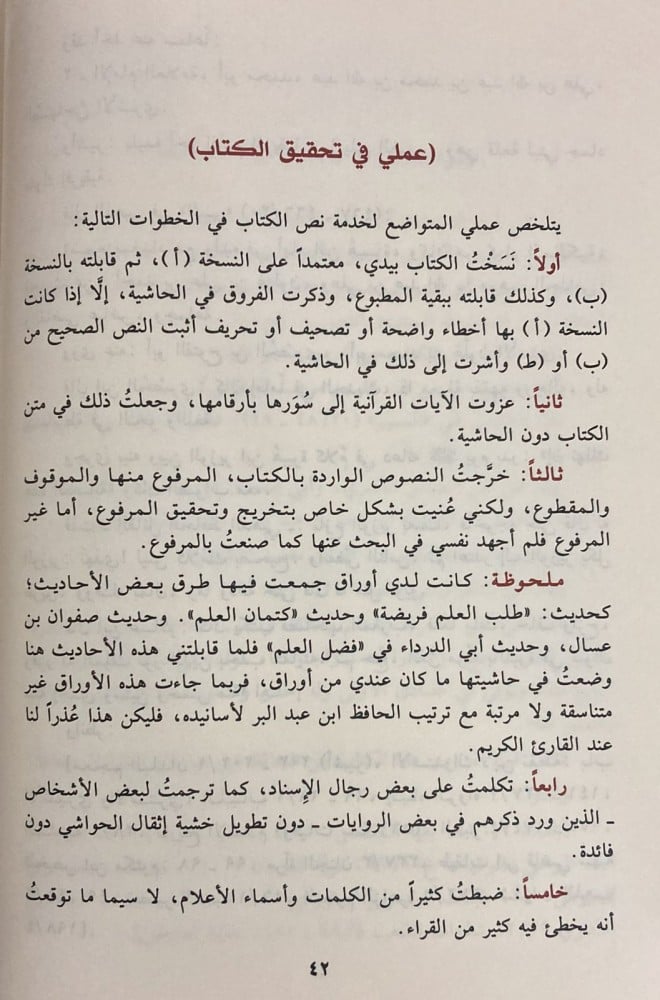 (عملي في تحقيق الكتاب)
يتلخص عملي المتواضع لخدمة نص الكتاب في الخطوات التالية:
أولاً: نَسَخْتُ الكتاب بيدي، معتمداً على النسخة (أ)، ثم قابلته بالنسخة
(ب)، وكذلك قابلته ببقية المطبوع، وذكرت الفروق في الحاشية، إلَّا إذا كانت
النسخة (أ) بها أخطاء واضحة أو تصحيف أو تحريف أثبت النص الصحيح من
(ب) أو (ط) وأشرت إلى ذلك في الحاشية.
ثانياً: عزوت الآيات القرآنية إلى سُوَرها بأرقامها، وجعلتُ ذلك في متن
الكتاب دون الحاشية.
ثالثاً: خرَّجتُ النصوص الواردة بالكتاب، المرفوع منها والموقوف
والمقطوع، ولكني عُنيت بشكل خاص بتخريج وتحقيق المرفوع، أما غير
المرفوع فلم أجهد نفسي في البحث عنها كما صنعتُ بالمرفوع.
ملحوظة: كانت لدي أوراق جمعت فيها طرق بعض الأحاديث؛
كحديث: «طلب العلم فريضة» وحديث «كتمان العلم». وحديث صفوان بن
عسال، وحديث أبي الدرداء في «فضل العلم» فلما قابلتني هذه الأحاديث هنا
وضعتُ في حاشيتها ما كان عندي من أوراق، فربما جاءت هذه الأوراق غير
متناسقة ولا مرتبة مع ترتيب الحافظ ابن عبد البر لأسانيده، فليكن هذا عُذراً لنا
عند القارئ الكريم.
رابعاً: تكلمتُ على بعض رجال الإسناد، كما ترجمتُ لبعض الأشخاص
ـ الذين ورد ذكرهم في بعض الروايات ـ دون تطويل خشية إثقال الحواشي دون
فائدة.
خامساً: ضبطتُ كثيراً من الكلمات وأسماء الأعلام، لا سيما ما توقعتُ
أنه يخطئ فيه كثير من القراء.
٤٢